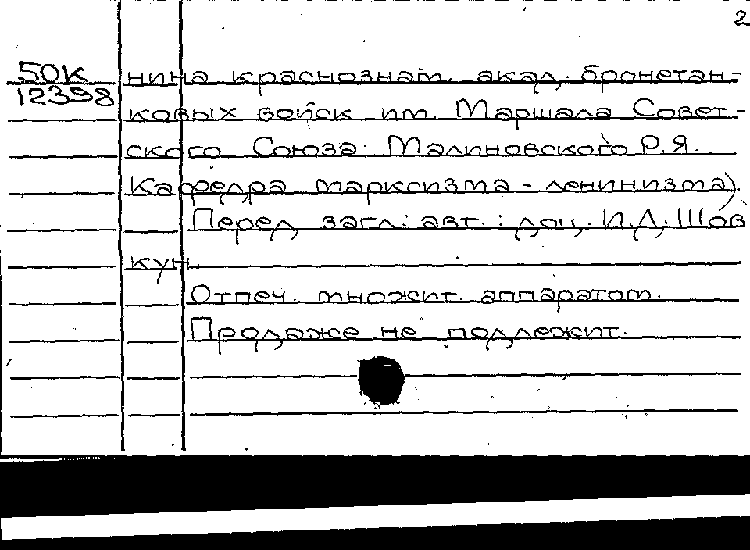 2
50К
12398
нина краснознам. акад. бронетан-
ковых войск им. Маршала Совет-
ского Союза Малиновского Р.Я.
Кафедра марксизма-ленинизма).
Перед загл.: авт.: доц. И.Д. Шов
кун.
Отпеч. множит. аппаратом.
Продаже не подлежит.